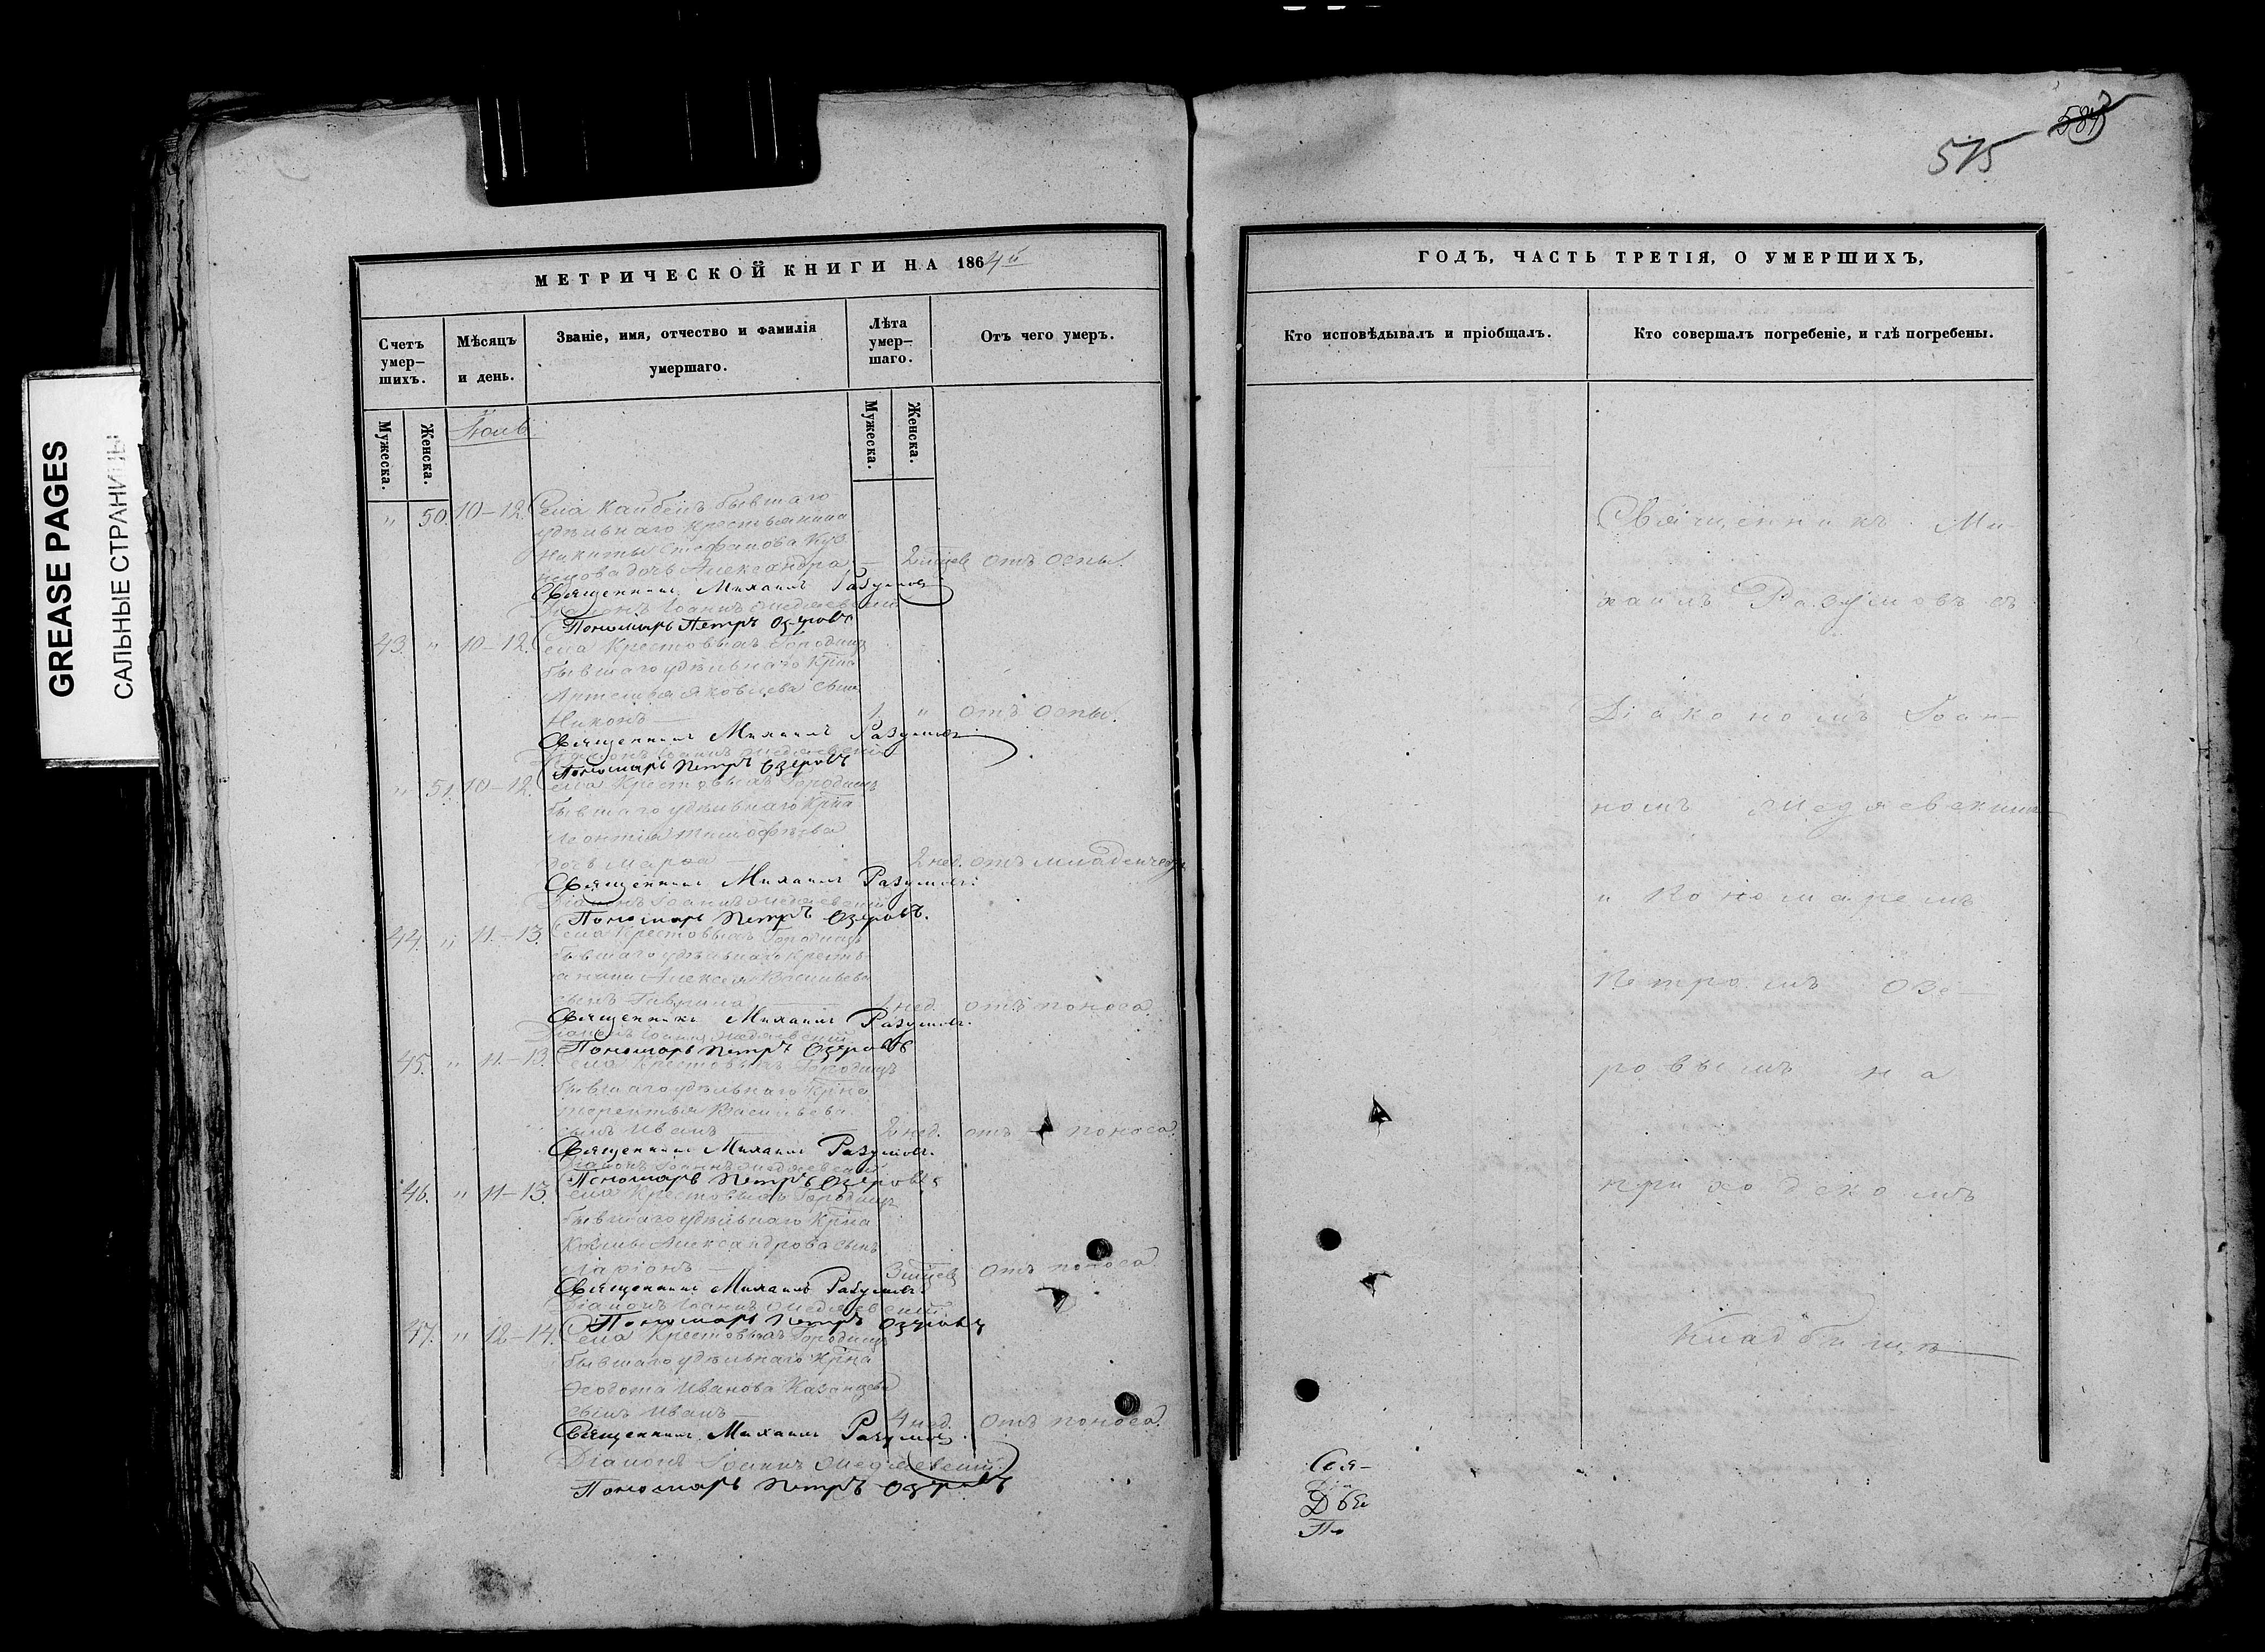 583
575
GREASE PAGES
САЛЬНЫЕ СТРАНИЦЫ
МЕТРИЧЕСКОЙ КНИГИ НА 1864й
Счетъ умер-шихъ.
Мѣсяцъ и день.
Званіе, имя, отчество и фамилія умершаго.
Лѣта умер-шаго.
Отъ чего умеръ.
Мужеска.
Женска.
Мужеска.
Женска.
Іюль
" 50. 10-12. Села Кайбелъ бывшаго
удѣльнаго крестьянина
Никиты Стефанова Куз
нецова дочь Александра — 2 мцев отъ оспы.
Священникъ Михаилъ Разумовъ
Діаконъ Іоаннъ Медяевскій
Пономарь Петръ Озеровъ
43. " 10-12. Села Крестовыхъ Городищъ
бывшаго удѣльнаго Кр̃на
Яковлева сынъ
Никонъ — 1. " отъ оспы.
Священникъ Михаилъ Разумовъ
Діаконъ Іоаннъ Медяевскій
Пономарь Петръ Озеровъ
" 51. 10-12. Села Крестовыхъ Городищъ
бывшаго удѣльнаго Кр̃на
Леонтія Тимофѣева
дочь Марѳа — 2 нед. отъ младенческ
Священникъ Михаилъ Разумовъ.
Діаконъ Іоаннъ Медяевскій
Пономарь Петръ Озеровъ.
44. " 11-13. Села Крестовыхъ Городищъ
бывшаго удѣльнаго кресть-
янина Алексея Васильева
сынъ Гавріилъ — нед. отъ поноса.
Священникъ Михаилъ Разумовъ.
Діаконъ Іоаннъ Медяевскій
Пономарь Петръ Озеровъ
45. " 11-13. Села Крестовыхъ Городищъ
бывшаго удѣльнаго Кр̃на
Терентья Васильева
сынъ Иванъ — 2 нед. отъ поноса.
Священникъ Михаилъ Разумовъ.
Діаконъ Іоаннъ Медяевскій
Пономарь Петръ Озеровъ
46. " 11-13. Села Крестовыхъ Городищъ
бывшаго удѣльнаго Кр̃на
Козмы Александрова сынъ
Ларіонъ — 3 мцев отъ поноса
Священникъ Михаилъ Разумовъ
Діаконъ Іоаннъ Медяевскій
Пономарь Петръ Озеровъ
47. " 12-14. Села Крестовыхъ Городищъ
бывшаго удѣльнаго Кр̃на
Ѳеодота Иванова Казанцева
сынъ Иванъ — 4 нед. отъ поноса.
Священникъ Михаилъ Разумовъ
Діаконъ Іоаннъ Медяевскій.
Пономарь Петръ Озеровъ
ГОДЪ, ЧАСТЬ ТРЕТІЯ, О УМЕРШИХЪ,
Кто исповѣдывалъ и пріобщалъ.
Кто совершалъ погребеніе, и гдѣ погребены.
Священникъ Ми-
хаилъ Разумовъ съ
Діакономъ Іоан-
номъ Медяевскимъ
и Пономаремъ
Петромъ Озе-
ровымъ на
приходскомъ
Кладбищѣ
Свя-
По